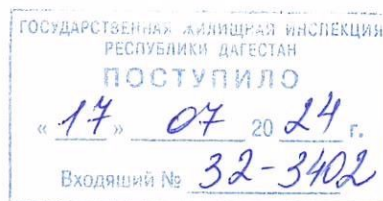 ГОСУДАРСТВЕННАЯ ЖИЛИЩНАЯ ИНСПЕКЦИЯ
РЕСПУБЛИКИ ДАГЕСТАН
ПОСТУПИЛО
« 17 » 07 20 24 г.
Входящий № 32-3402